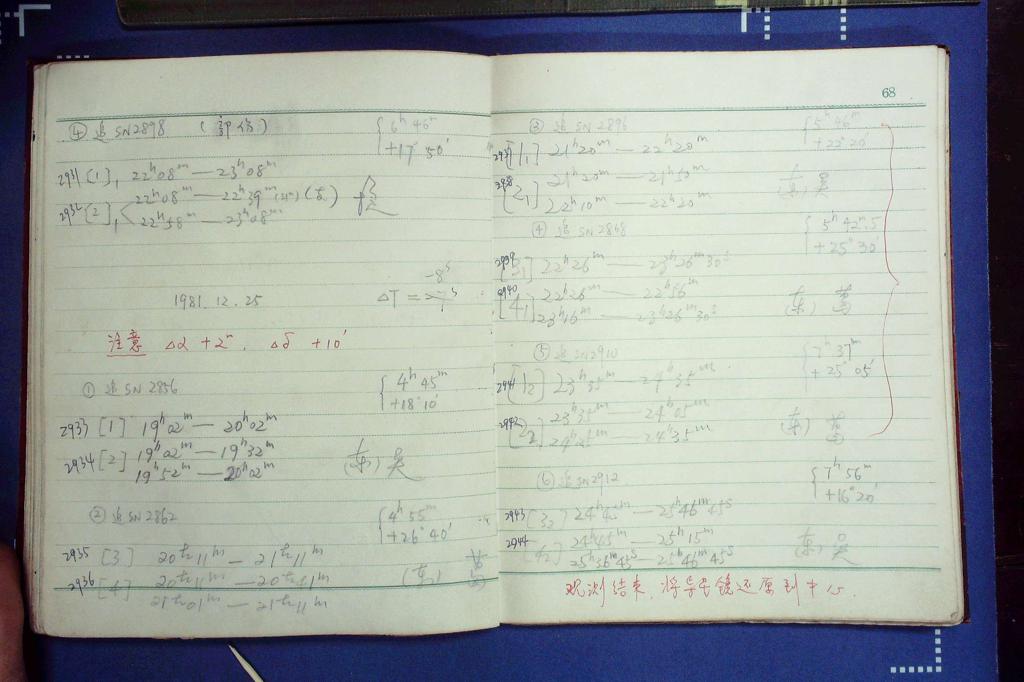 ④ 追 SN2898
{ 6ʰ 46ᵐ
+17° 50′
2931 [1], 22ʰ08ᵐ — 23ʰ08ᵐ
22ʰ08ᵐ — 22ʰ39ᵐ
2932 [2],
22ʰ58ᵐ — 23ʰ08ᵐ
1981.12.25
ΔT =
-8ˢ
注意 Δα +2ᵐ. Δδ +10′
① 追 SN 2856
{ 4ʰ 45ᵐ
+18° 10′
2933 [1] 19ʰ02ᵐ — 20ʰ02ᵐ
2934 [2] 19ʰ02ᵐ — 19ʰ32ᵐ
19ʰ52ᵐ — 20ʰ02ᵐ
(东) 吴
② 追 SN 2862
{ 4ʰ 55ᵐ
+26° 40′
2935 [3] 20ʰ11ᵐ — 21ʰ11ᵐ
2936 [4] 20ʰ11ᵐ — 20ʰ41ᵐ
21ʰ01ᵐ — 21ʰ11ᵐ
68
③ 追 SN 2896
{ 5ʰ 46ᵐ
+22° 20′
[1₁] 21ʰ20ᵐ — 22ʰ20ᵐ
[2₁] 21ʰ20ᵐ — 21ʰ50ᵐ
22ʰ10ᵐ — 22ʰ20ᵐ
(东) 吴
④ 追 SN 2868
{ 5ʰ 42ᵐ.5
+25° 30′
2939 [3₁] 22ʰ26ᵐ — 23ʰ26ᵐ30ˢ
2940 [4₁] 22ʰ26ᵐ — 22ʰ56ᵐ
23ʰ16ᵐ — 23ʰ26ᵐ30ˢ
(东)
⑤ 追 SN 2910
{ 7ʰ 37ᵐ
+25° 05′
2941 [1₂] 23ʰ35ᵐ — 24ʰ35ᵐ
2942 [2₂] 23ʰ35ᵐ — 24ʰ05ᵐ
24ʰ25ᵐ — 24ʰ35ᵐ
(东)
⑥ 追 SN 2912
{ 7ʰ 56ᵐ
+16° 20′
2943 [3₂] 24ʰ45ᵐ — 25ʰ46ᵐ45ˢ
2944 [4₂] 24ʰ45ᵐ — 25ʰ15ᵐ
25ʰ36ᵐ45ˢ — 25ʰ46ᵐ45ˢ
(东) 吴
观测结束, 将导星镜还原到中心.